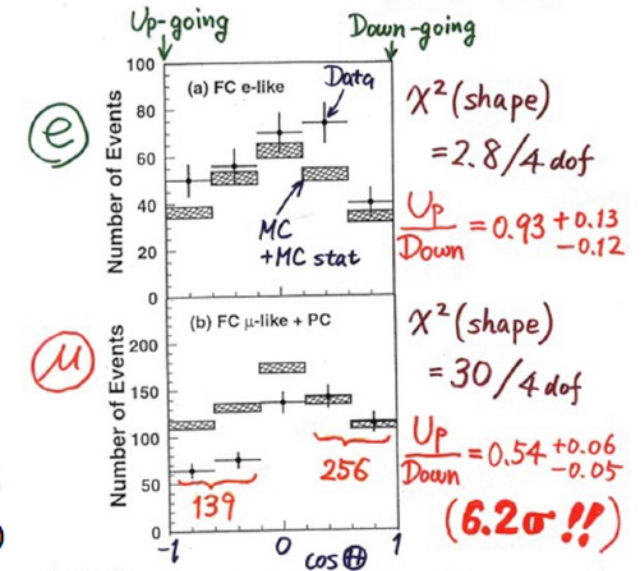 Up-going
Down-going
e
(a) FC e-like
Data
MC
+MC stat
Number of Events
100
80
60
40
20
0
χ²(shape)
=2.8/4 dof
Up/Down = 0.93 +0.13 −0.12
μ
(b) FC μ-like + PC
139
256
Number of Events
200
150
100
50
0
-1
0
1
cosΘ
χ²(shape)
=30/4 dof
Up/Down = 0.54 +0.06 −0.05
(6.2σ!!)